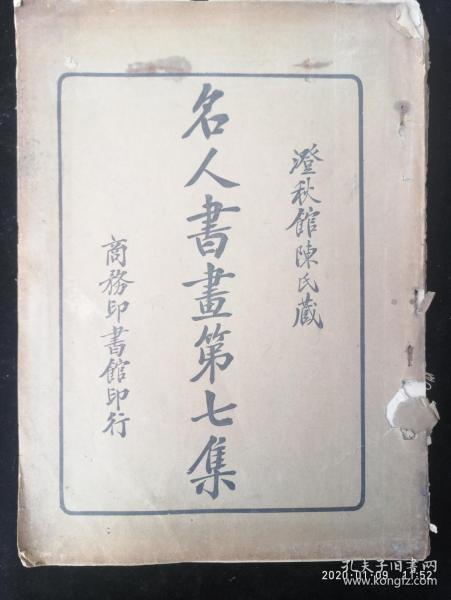 澄秋館陳氏藏
名人書畫第七集
商務印書館印行
孔夫子旧書网
2020.01.09 11:52